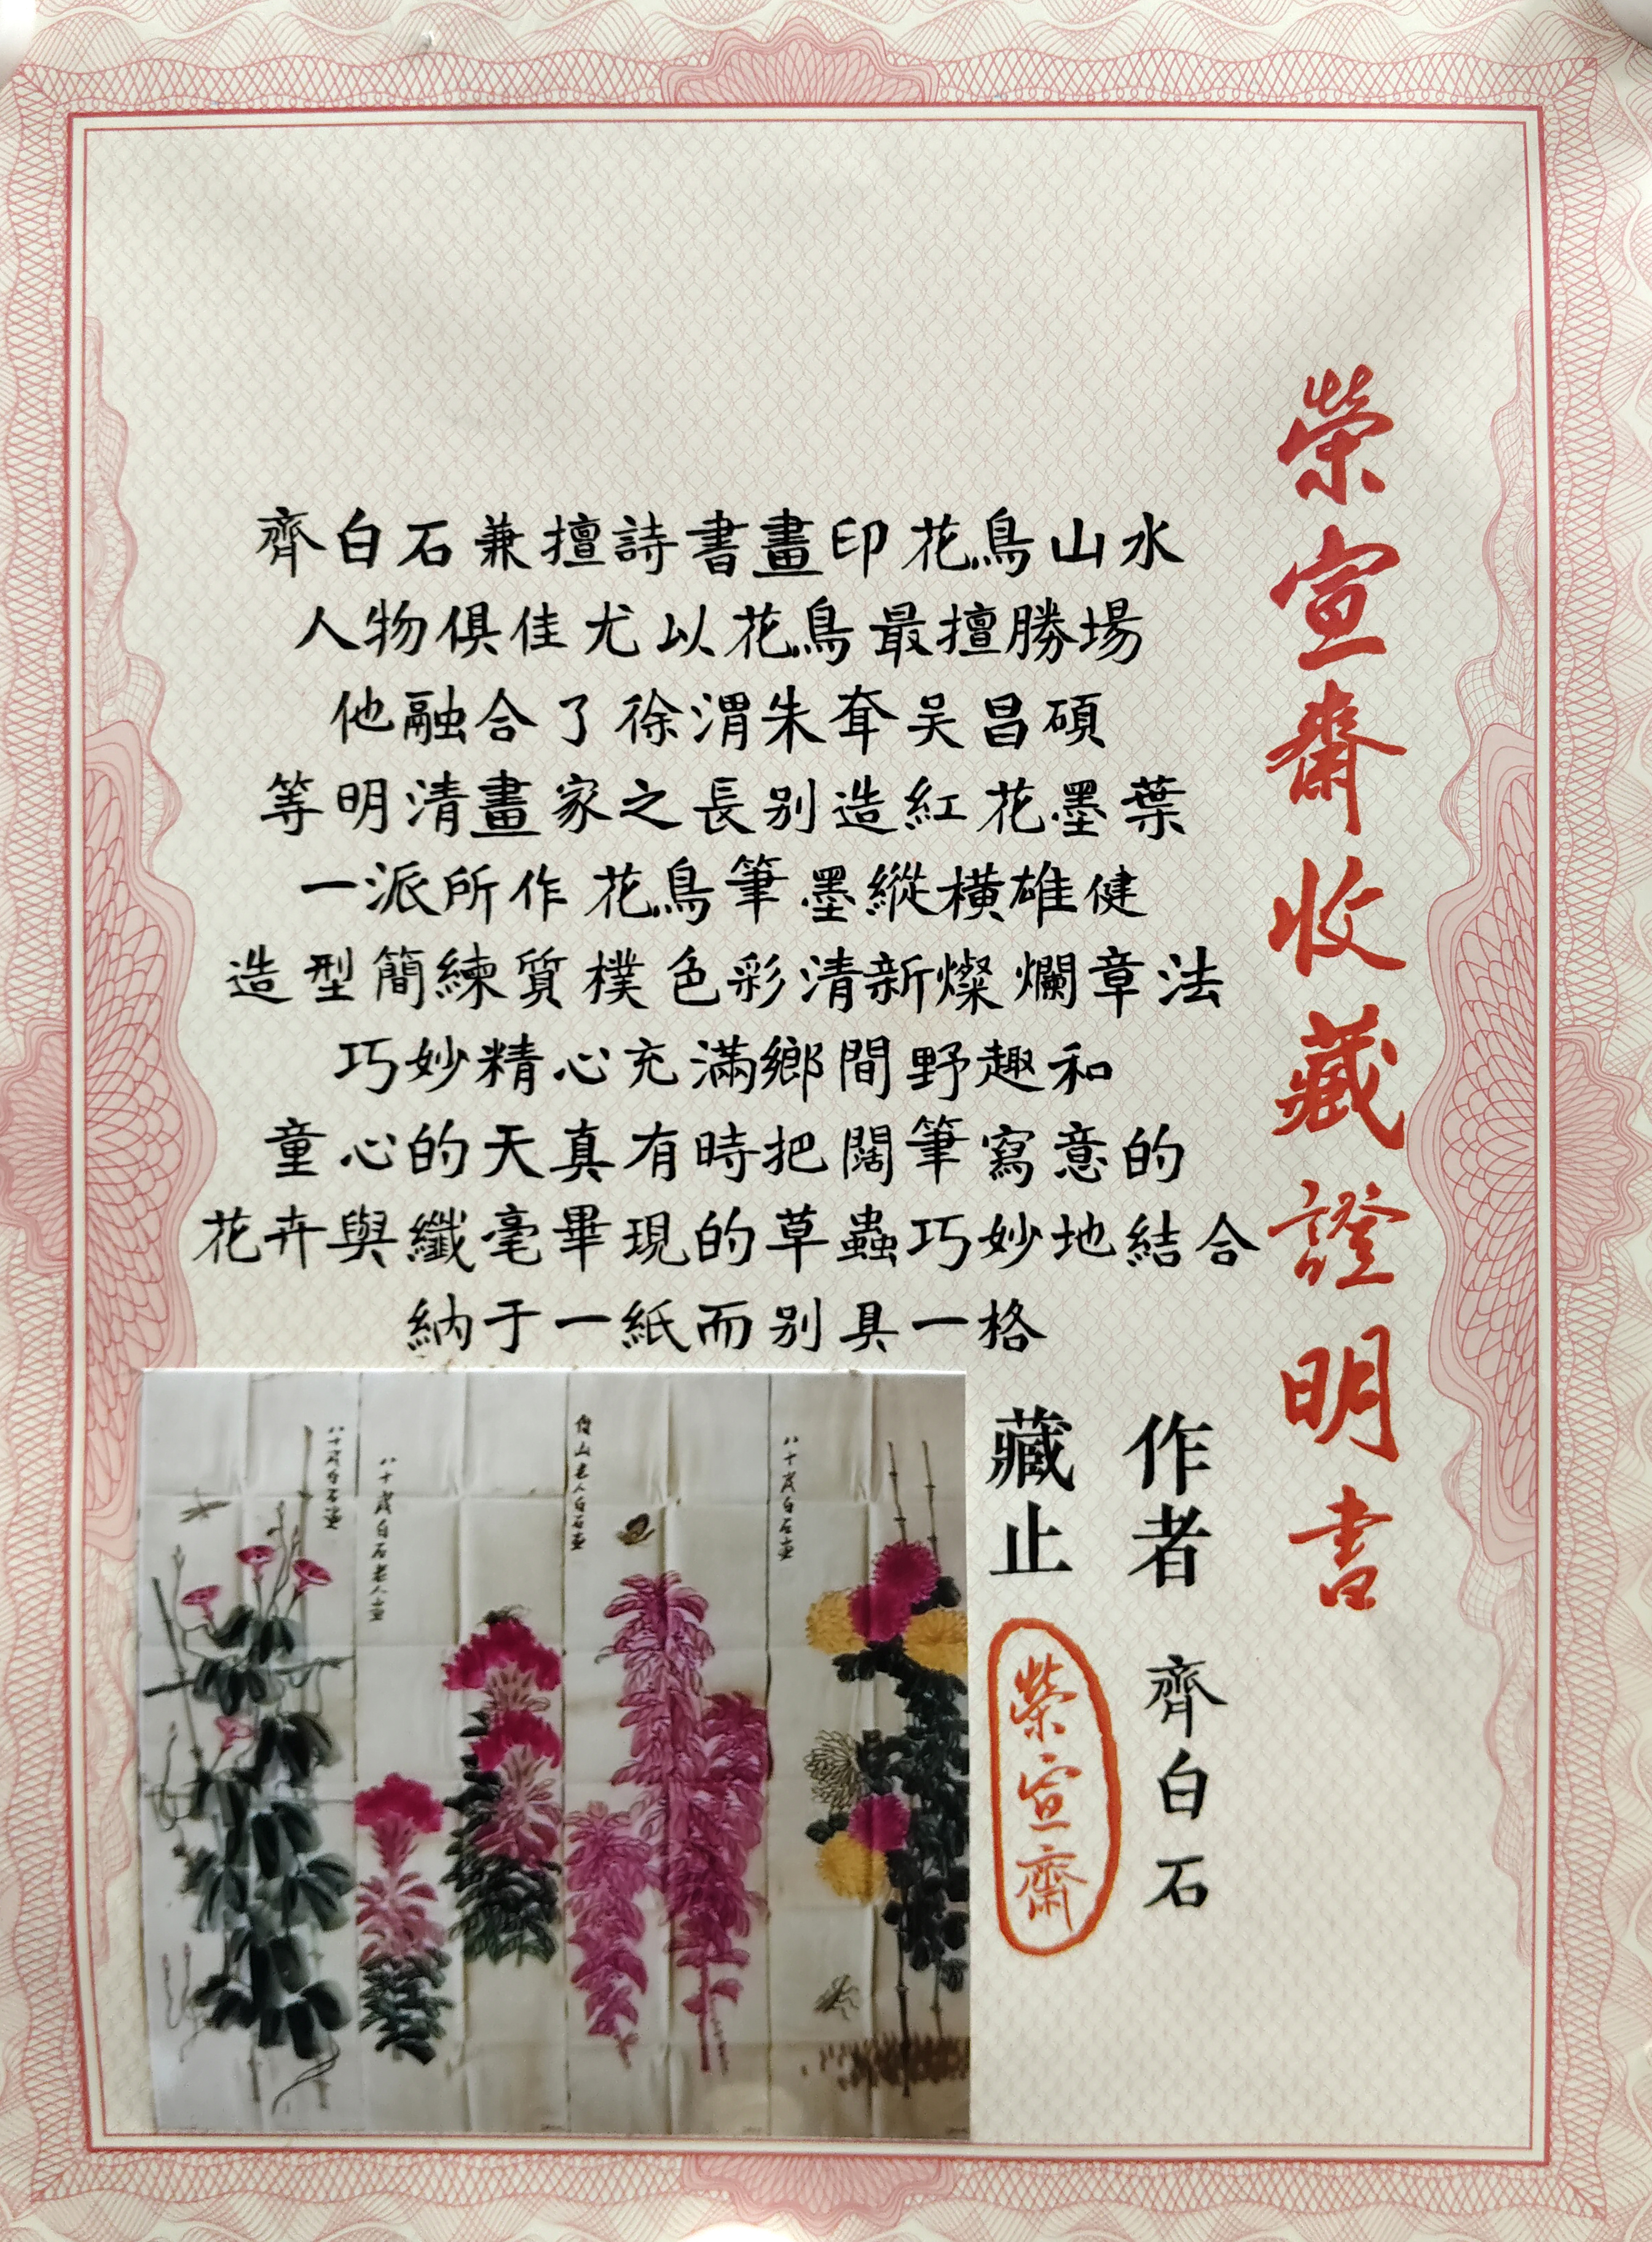 榮宣齋收藏證明書
齊白石兼擅詩書畫印花鳥山水
人物俱佳尤以花鳥最擅勝場
他融合了徐渭朱耷吴昌碩
等明清畫家之長别造紅花墨葉
一派所作花鳥筆墨縱橫雄健
造型簡練質樸色彩清新燦爛章法
巧妙精心充滿鄉間野趣和
童心的天真有時把闊筆寫意的
花卉與纖毫畢現的草蟲巧妙地結合
納于一紙而别具一格
作者 齊白石
藏止 榮宣齋
八十歲白石畫
借山老人白石畫
八十歲白石老人畫
八十歲白石畫